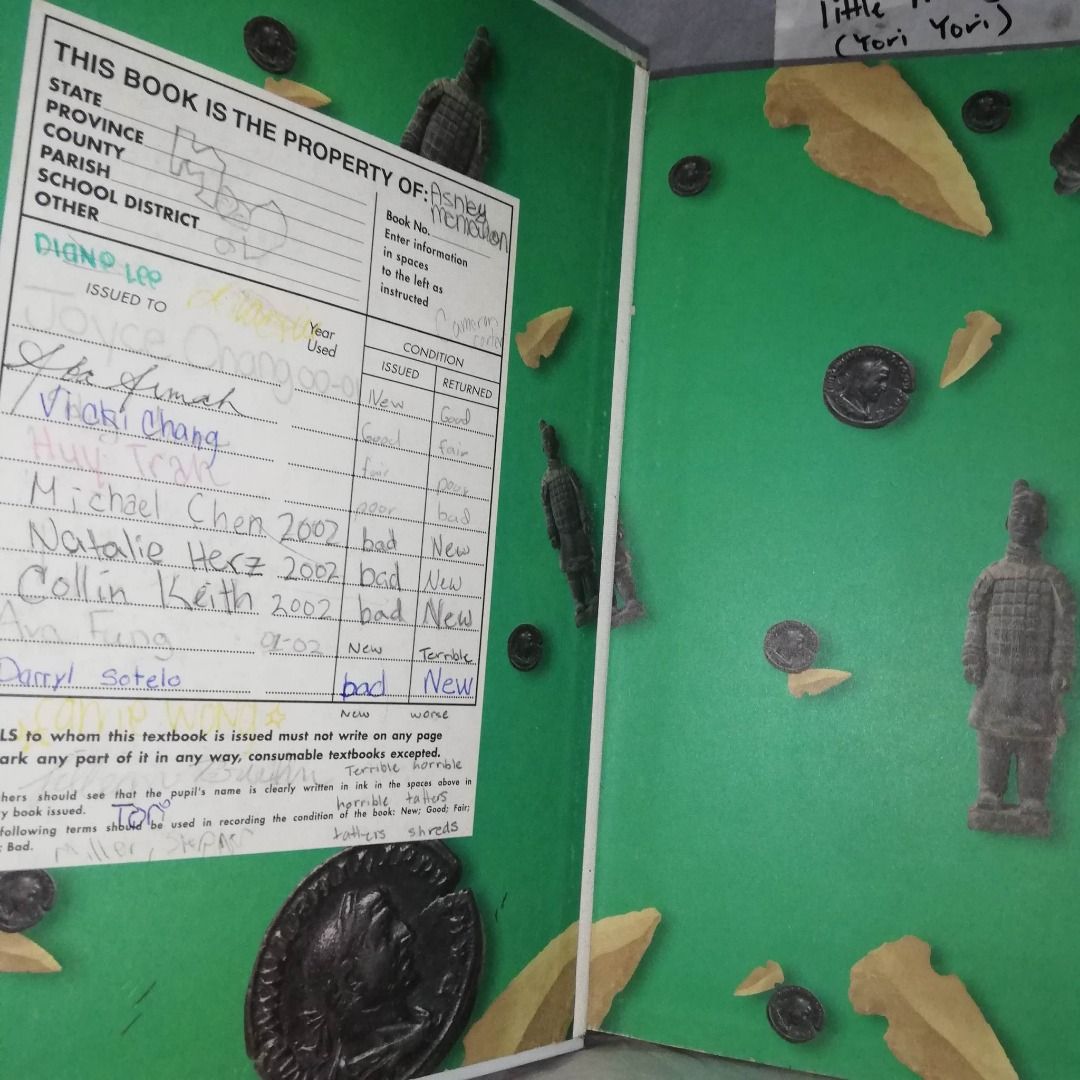 little
(Yori Yori)
THIS BOOK IS THE PROPERTY OF: Ashley
McMahon
STATE
PROVINCE
COUNTY
PARISH
SCHOOL DISTRICT
OTHER
Book No.
Enter information
in spaces
to the left as
instructed
Diane Lee
ISSUED TO
Year
Used
Cameron
CONDITION
ISSUED
RETURNED
Joyce Chang 00-01
New Good
Good fair
Vicki Chang fair poor
Huy Tran poor bad
Michael Chen 2002 bad New
Natalie Herz 2002 bad New
Collin Keith 2002 bad New
Ann Fung 01-02 New Terrible
Darryl Sotelo bad New
Carrie Wong New worse
LS to whom this textbook is issued must not write on any page
ark any part of it in any way, consumable textbooks excepted.
Terrible horrible
hers should see that the pupil's name is clearly written in ink in the spaces above in
y book issued. Tori horrible tatters
following terms should be used in recording the condition of the book: New; Good; Fair;
; Bad. tatters shreds
Miller,